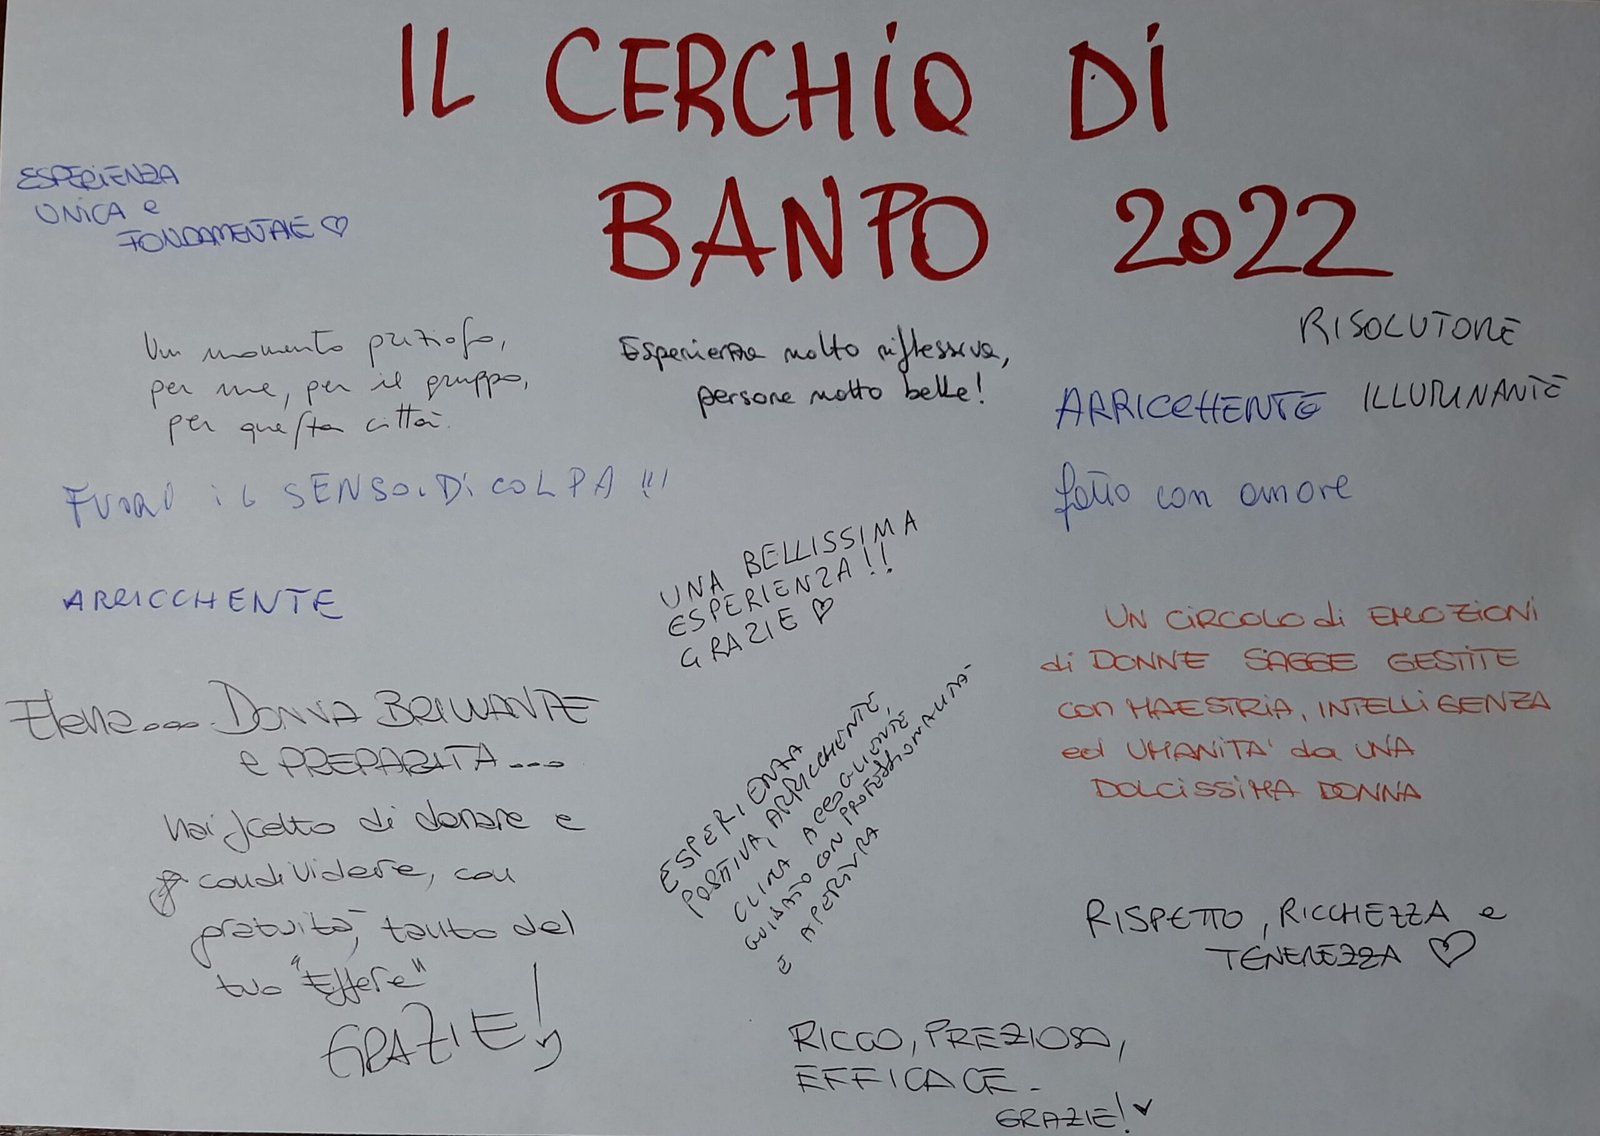 IL CERCHIO DI
BANPO 2022
ESPERIENZA
UNICA e
FONDAMENTALE ♡
Un momento prezioso,
per me, per il gruppo,
per questa città.
Esperienza molto riflessiva,
persone molto belle!
RISOLUTORE
ARRICCHENTE
ILLUMINANTE
FUORI IL SENSO.DI COLPA !!!
fatto con amore
ARRICCHENTE
UNA BELLISSIMA
ESPERIENZA!!
GRAZIE ♡
UN CIRCOLO di EMOZIONI
di DONNE SAGGE GESTITE
con MAESTRIA, INTELLIGENZA
ed UMANITA' da UNA
DOLCISSIMA DONNA
Elena.... DONNA BRILLANTE
e PREPARATA....
hai scelto di donare e
condividere, con
gratuità, tanto del
tuo "Essere"
GRAZIE!
ESPERIENZA
POSITIVA, ARRICCHENTE,
CLIMA ACCOGLIENTE
GUIDATO CON PROFESSIONALITÀ
E APERTURA
RISPETTO, RICCHEZZA e
TENEREZZA ♡
RICCO, PREZIOSO,
EFFICACE -
GRAZIE!